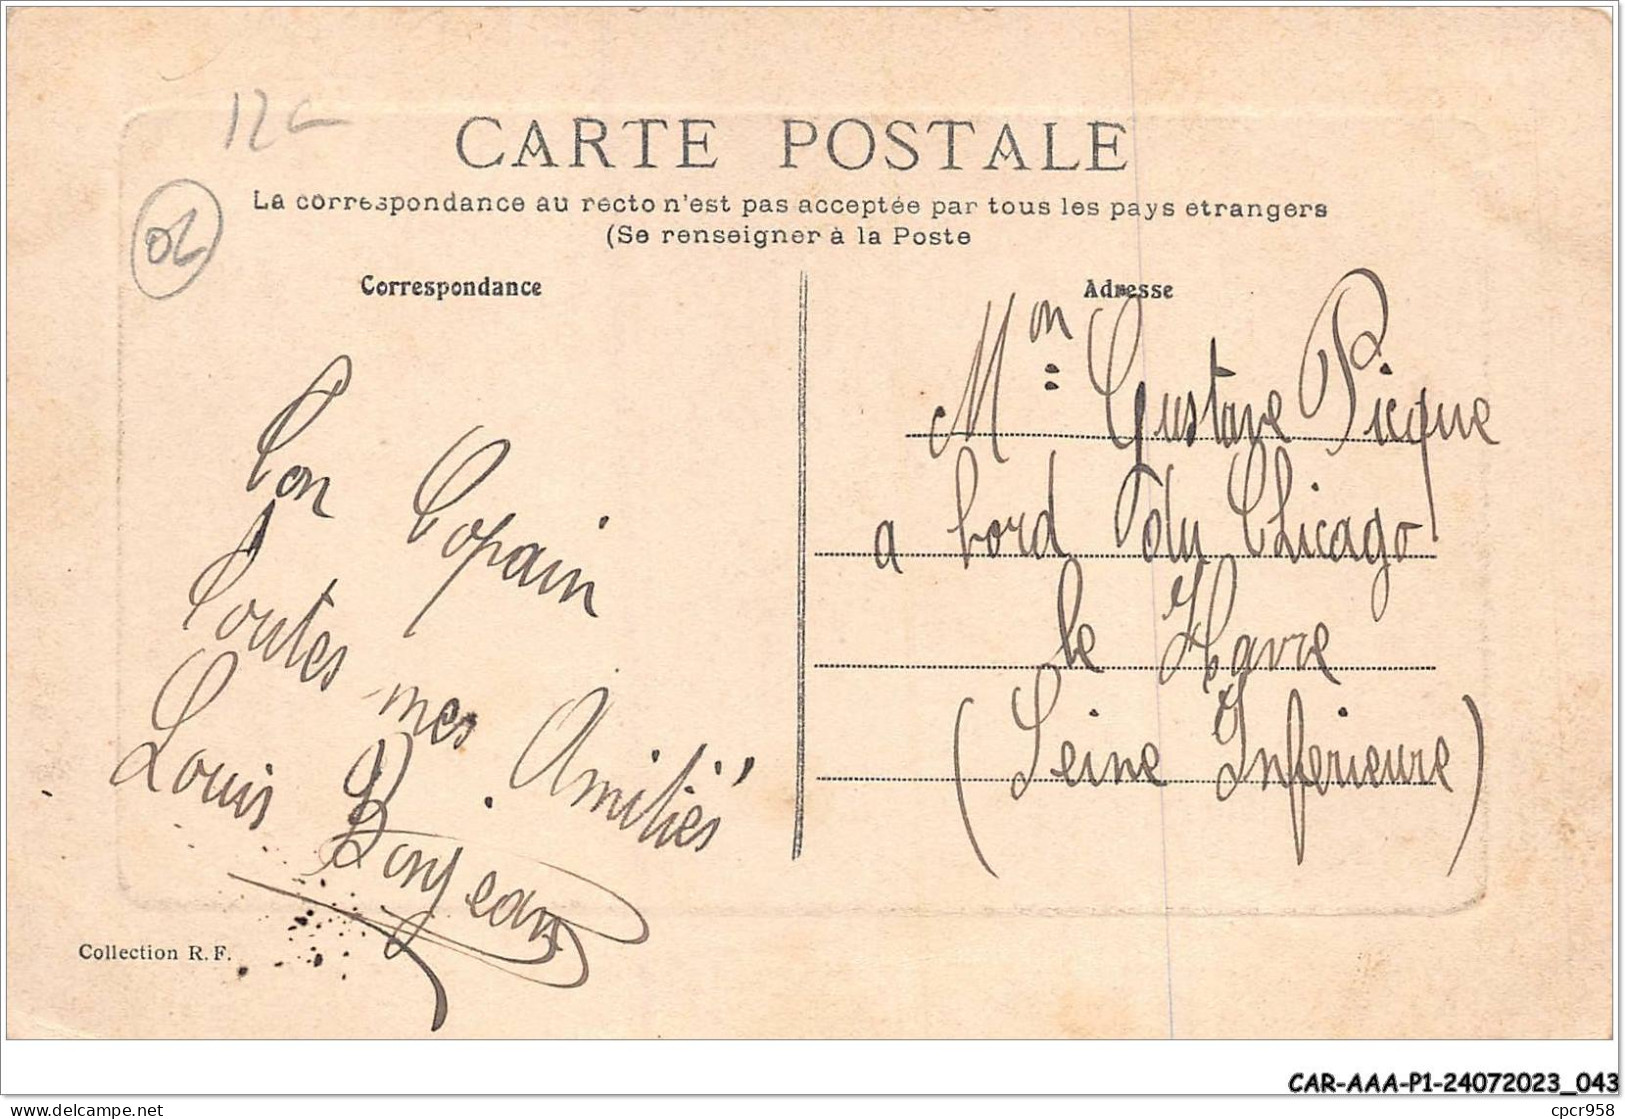 12€
02
CARTE POSTALE
La correspondance au recto n'est pas acceptée par tous les pays etrangers
(Se renseigner à la Poste
Correspondance
Ton Copain
Toutes mes Amitiés
Louis Bonjean
Collection R. F.
Adresse
Mon: Gustave Picque
a bord du Chicago
le Havre
(Seine Inferieure)
CAR-AAA-P1-24072023_043
delcampe.net
cpcr958